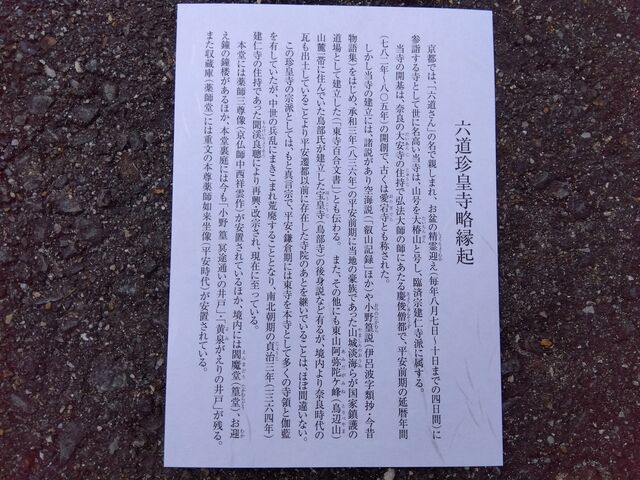 六道珍皇寺略縁起
京都では、「六道さん」の名で親しまれ、お盆の精霊迎え(毎年八月七日〜十日までの四日間)に
参詣する寺として世に名高い当寺は、山号を大椿山と号し、臨済宗建仁寺派に属する。
当寺の開基は、奈良の大安寺の住持で弘法大師の師にあたる慶俊僧都で、平安前期の延暦年間
(七八二年〜八〇五年)の開創で、古くは愛宕寺とも称された。
しかし当寺の建立には、諸説があり空海説(「叡山記録」ほか)や小野篁説(伊呂波字類抄・今昔
物語集)をはじめ、承和三年(八三六年)の平安前期に当地の豪族であった山城淡海らが国家鎮護の
道場として建立した(「東寺百合文書」)とも伝わる。また、その他にも東山阿弥陀ケ峰(鳥辺山)
山麓一帯に住んでいた鳥部氏が建立した宝皇寺(鳥部寺)の後身説など有るが、境内より奈良時代の
瓦も出土していることより平安遷都以前に存在した寺院のあとを継いでいることは、ほぼ間違いない。
この珍皇寺の宗派としては、もと真言宗で、平安・鎌倉期には東寺を本寺として多くの寺領と伽藍
を有していたが、中世の兵乱にまきこまれ荒廃することとなり、南北朝期の貞治三年(一三六四年)
建仁寺の住持であった聞溪良聰により再興・改宗され、現在に至っている。
本堂には薬師三尊像(京仏師中西祥雲作)が安置されているほか、境内には閻魔堂(篁堂)、お迎
え鐘の鐘楼があるほか、本堂裏庭には今も「小野篁 冥途通いの井戸」・「黄泉がえりの井戸」が残る。
また収蔵庫(薬師堂)には重文の本尊薬師如来坐像(平安時代)が安置されている。